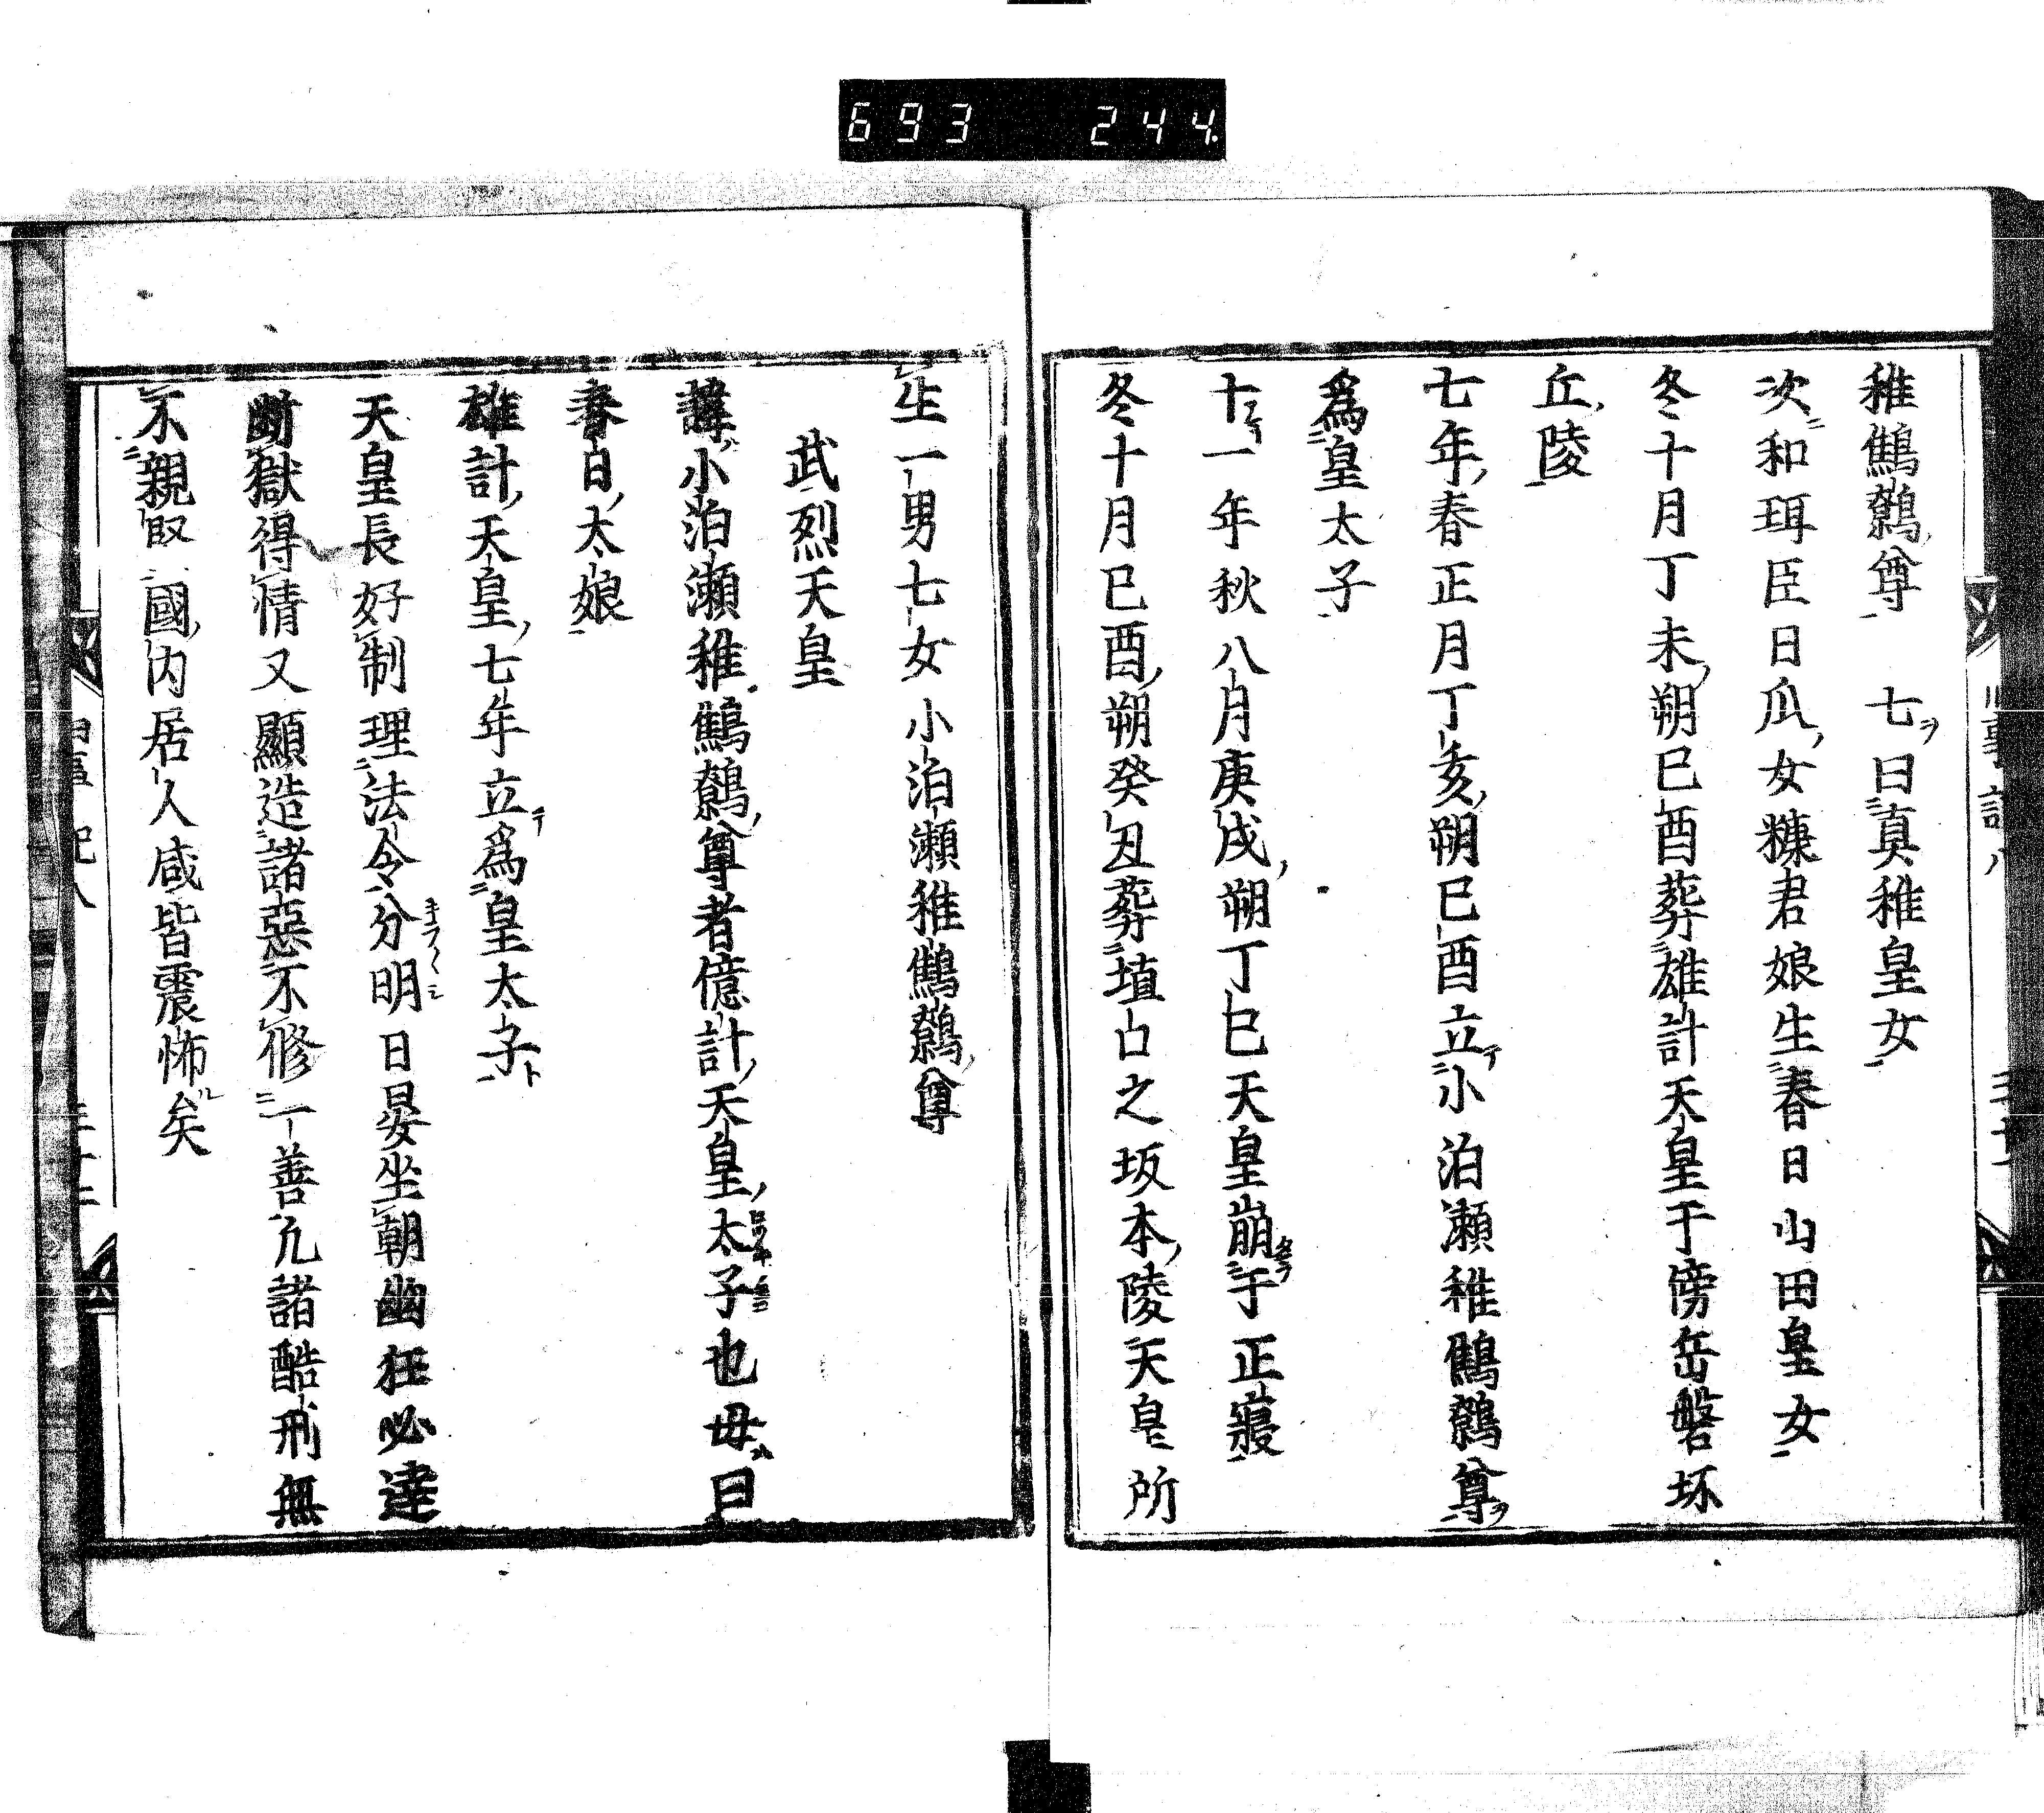 693 244
稚鷦鷯尊 七曰真稚皇女
次和珥臣日瓜女糠君娘生春日山田皇女
冬十月丁未朔巳酉葬雄計天皇于傍岳磐坏
丘陵
七年春正月丁亥朔巳酉立小泊瀬稚鷦鷯尊
爲皇太子
十一年秋八月庚戌朔丁巳天皇崩于正寢
冬十月巳酉朔癸丑葬埴口之坂本陵天皇所
生一男七女小泊瀬稚鷦鷯尊
武烈天皇
諱小泊瀬稚鷦鷯尊者億計天皇太子也母曰
春日太娘
雄計天皇七年立爲皇太子
天皇長好制理法令分明日晏坐朝幽狂必達
斷獄得情又顯造諸惡不修一善凢諸酷刑無
不親臤國内居人咸皆震怖矣